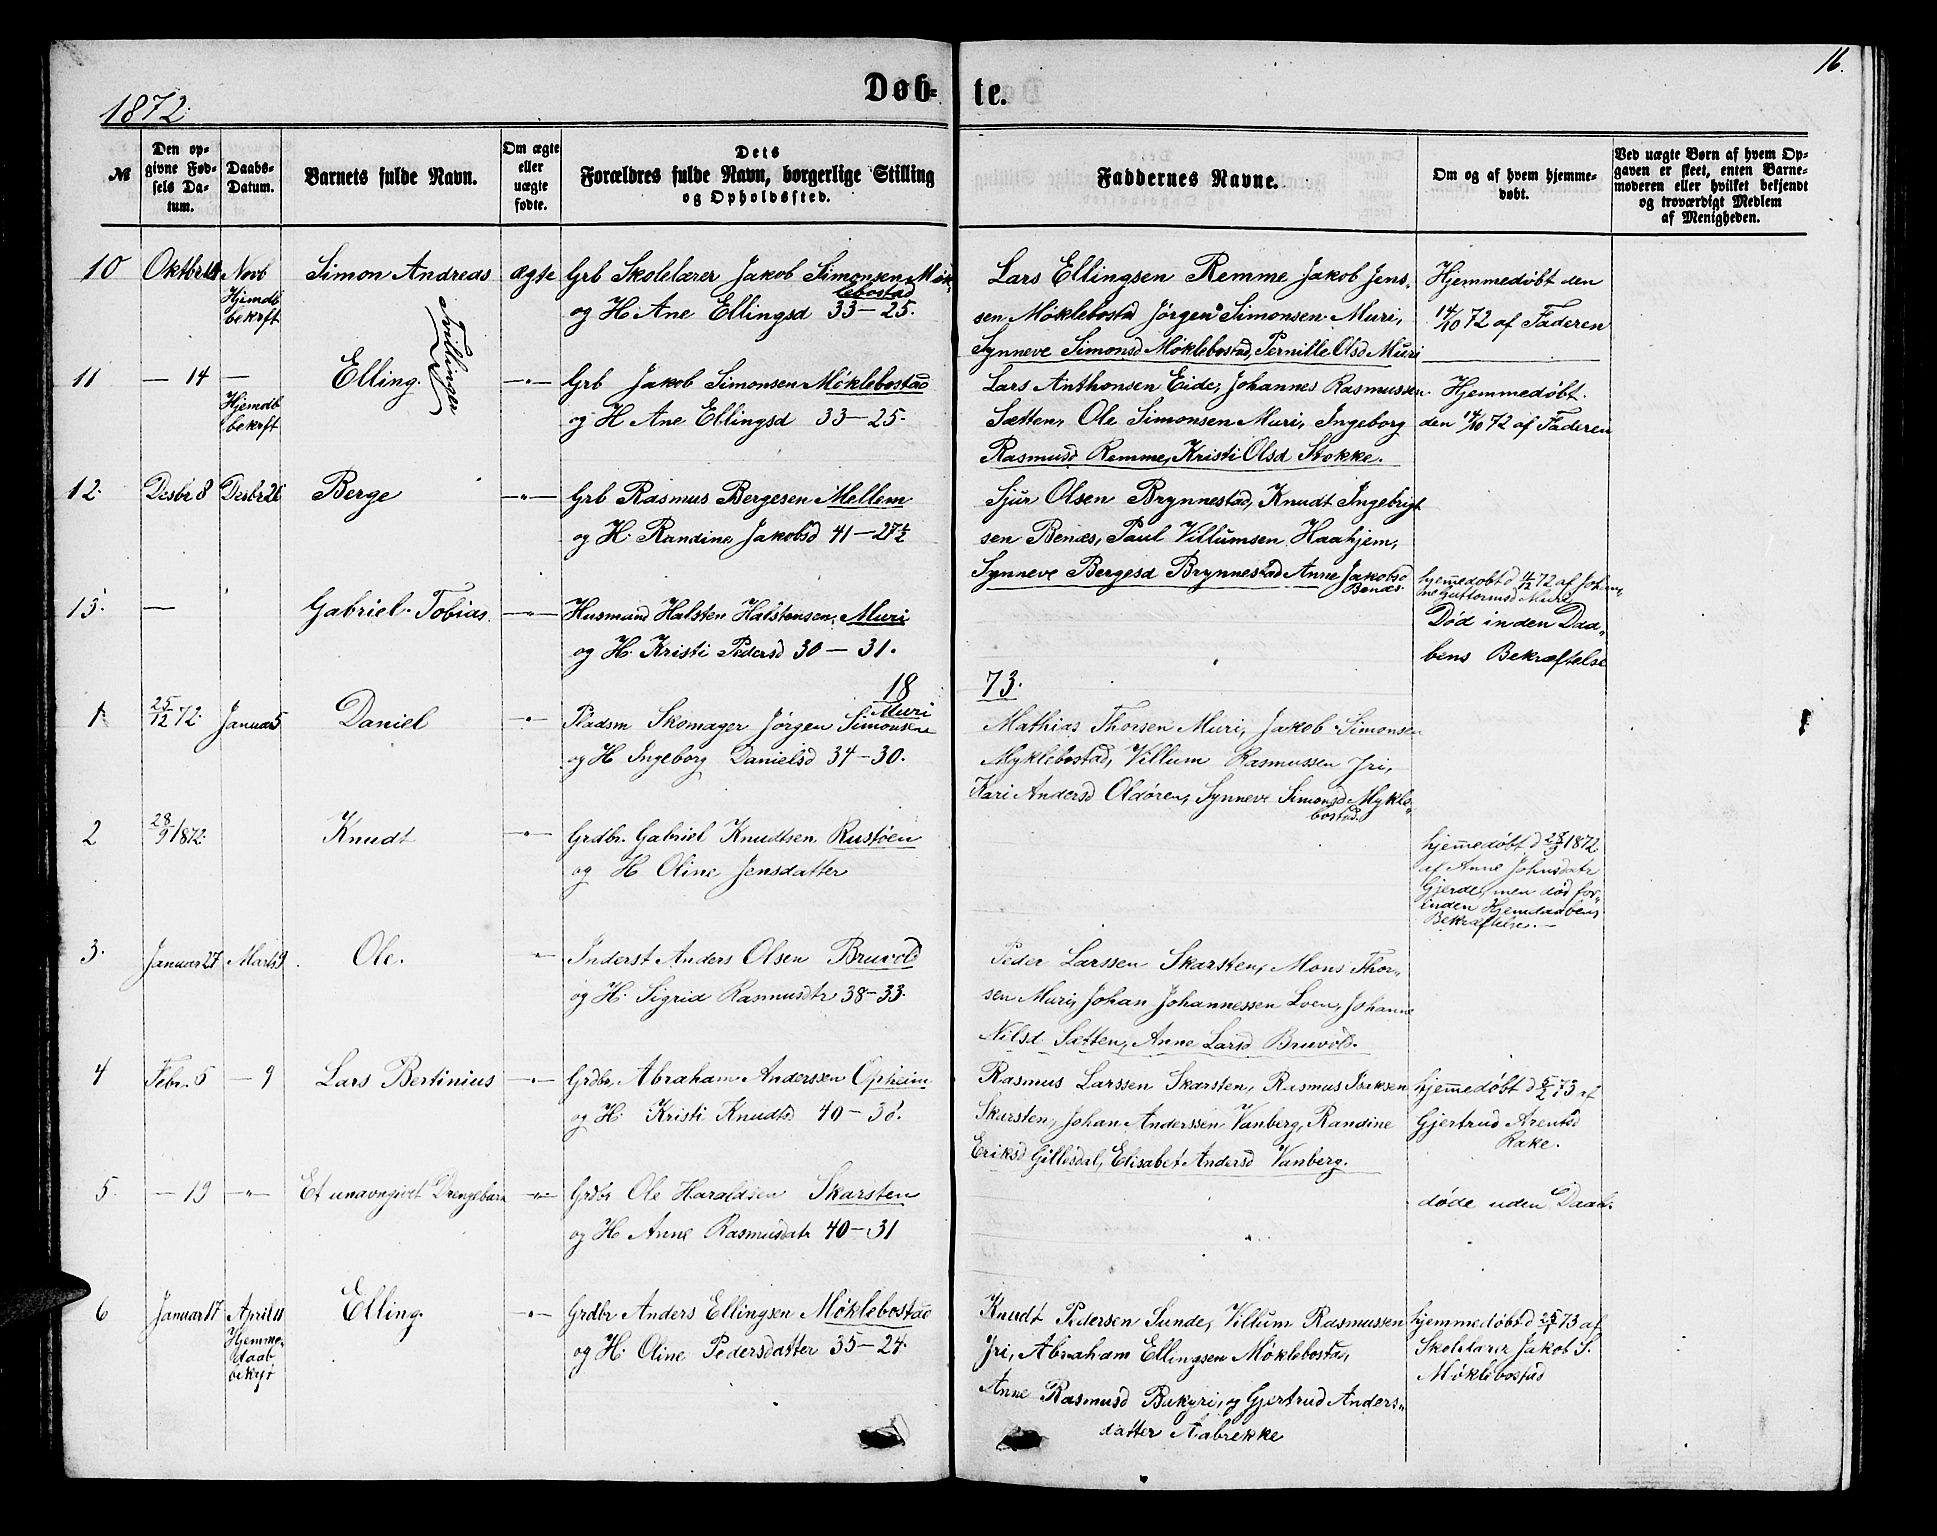 16.
1872.
Døb- te.
№
Den op-
givne Fød-
sels Da-
tum.
Daabs-
Datum.
Barnets fulde Navn.
Om ægte
eller
uægte
fødte.
Dets
Forældres fulde Navn, borgerlige Stilling
og Opholdssted.
Faddernes Navne.
Om og af hvem hjemme-
døbt.
Ved uægte Børn af hvem Op-
gaven er skeet, enten Barne-
moderen eller hvilket bekjendt
og troværdigt Medlem
af Menigheden.
10 Oktbr Novb Simon Andreas ægte Grb Skolelærer Jakob Simonsen Møk
lebostad
Hjemdb
bekrft
og H. Ane Ellingsd 33-25.
Lars Ellingsen Remme Jakob Jens-
sen Møklebostad Jørgen Simonsen Muri,
Synneve Simonsd Møklebostad, Pernille Olsd Muri
Hjemmedøbt den
14/10 72 af Faderen
Tvillinger
11 — 14 — Elling. —"— Grb Jakob Simonsen Møklebostad
Hjemdb
bekrft
og H Ane Ellingsd 33-25.
Lars Anthonsen Eide, Johannes Rasmussen
Sætten, Ole Simonsen Muri, Ingeborg
Rasmusd Remme, Kristi Olsd Stokke.
Hjemmedøbt.
den 14/10 72 af Faderen
12. Desbr 8 Desbr 26 Berge —"— Grb Rasmus Bergesen Mellem
og H. Randine Jakobsd 41-27½
Sjur Olsen Brynnestad, Knudt Ingebrigt
sen Benæs, Paul Villumsen Haahjem,
Synneve Bergesd Brynnestad Anne Jakobsd
Benæs.
13. — Gabriel Tobias. —"— Husmand Halsten Halstensen, Muri
og H. Kristi Pedersd 30-31.
hjemmedøbt d 72 af
Guttormsd Muri,
Død inden Daa-
bens Bekræftelse
18 73.
1 25/12 72. Januar 5 Daniel " Pladsm Skomager Jørgen Simonsen
Muri
og H Ingeborg Danielsd 34-30.
Mathias Thorsen Muri, Jakob Simonsen
Myklebostad, Villum Rasmussen Jri,
Kari Andersd Oldøren, Synneve Simonsd Mykle-
bostad.
2 28/9 1872. Knudt —"— Grdbr. Gabriel Knudtsen Rustøen
og H Oline Jensdatter
hjemmedøbt d 28/9 1872
af Anne Johnsdatr
Gjerde, men død for-
inden Hjemdaabens
Bekræftelse.—
3. Januar 27 Marts 9 Ole. " Inderst Anders Olsen Bruvold
og H. Sigrid Rasmusdtr 38-33.
Peder Larssen Skarsten, Mons Thor-
sen Muri, Johan Johannessen Loen, Johanne
Nilsd Sætten, Anne Larsd Bruvold.
4 Febr. 5 — 9 Lars Bertinius —"— Grdbr. Abraham Anderssen Opheim
og H. Kristi Knudtsd
Rasmus Larssen Skarsten, Rasmus Isaksen
Skarsten, Johan Anderssen Vanberg, Randine
Eriksd Gillesdal, Elisabet Andersd Vanberg.
hjemmedøbt d 5/2 73 af
Gjertrud Arentsd
Rake.
5. — 19 —"— Et unavngivet Drengebarn —"— Grdbr Ole Haraldsen Skarsten
og H Anne Rasmusdatr 40-31
døde uden Daab.
6 Januar 17 April 11 Elling. " Grdbr Anders Ellingsen Møklebostad
Hjemme-
daab
bekrft
og H. Oline Pedersdatter 35-24.
Knudt Pedersen Sunde, Villum Rasmussen
Jri, Abraham Ellingsen Møklebostad,
Anne Rasmusd Bukyri, og Gjertrud Anders-
datter Aabrekke
hjemmedøbt d 73 af
Skolelærer Jakob S.
Møklebostad